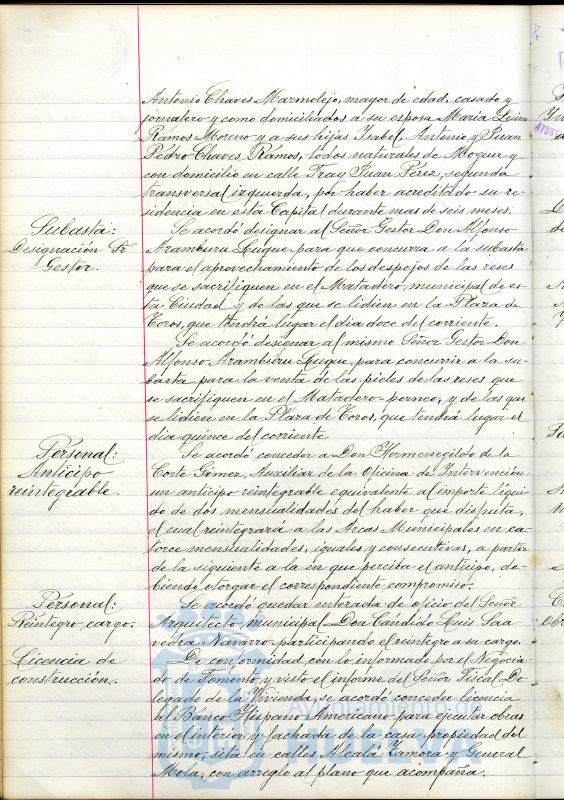 Antonio Chaves Marmolejo, mayor de edad, casado y
jornalero y como domiciliados a su esposa Maria
Ramos Moreno y a sus hijas Isabel, Antonio y Juan
Pedro Chaves Ramos, todos naturales de Moguer y
con domicilio en calle Fray Juan Pérez, segunda
transversal izquierda, por haber acreditado su re-
sidencia en esta Capital durante mas de seis meses.
Subasta:
Designación de
Gestor.
Se acordó designar al Señor Gestor Don Alfonso
Aramburu Luque para que concurra a la subasta
para el aprovechamiento de los despojos de las reses
que se sacrifiquen en el Matadero, municipal de es-
ta Ciudad y de las que se lidien en la Plaza de
Toros, que tendrá lugar el dia doce del corriente.
Se acordó designar al mismo Señor Gestor Don
Alfonso Aramburu Luque, para concurrir a la su-
basta para la venta de las pieles de las reses que
se sacrifiquen en el Matadero porneo, y de las que
se lidien en la Plaza de Toros, que tendrá lugar el
dia quince del corriente
Personal:
Anticipo
reintegrable.
Se acordó conceder a Don Hermenegildo de la
Corte Gámez, Auxiliar de la Oficina de Intervención
un anticipo reintegrable equivalente al importe líqui-
do de dos mensualidades del haber que disfruta,
el cual reintegrará a las Arcas Municipales en ca-
torce mensualidades, iguales y consecutivas, a partir
de la siguiente a la en que perciba el anticipo, de-
biendo otorgar el correspondiente compromiso.
Personal:
Reintegro cargo.
Se acordó quedar enterada de oficio del Señor
Arquitecto municipal Don Candido Luis Saa-
vedra Navarro participando el reintegro a su cargo.
Licencia de
construcción.
De conformidad con lo informado por el Negocia-
do de Fomento y visto el informe del Señor Fiscal De-
legado de la Vivienda, se acordó conceder licencia
al Banco Hispano Americano para ejecutar obras
en el interior y fachada de la casa propiedad del
mismo, sita en calles Alcalá Zamora y General
Mola, con arreglo al plano que acompaña.
Ayuntamiento de